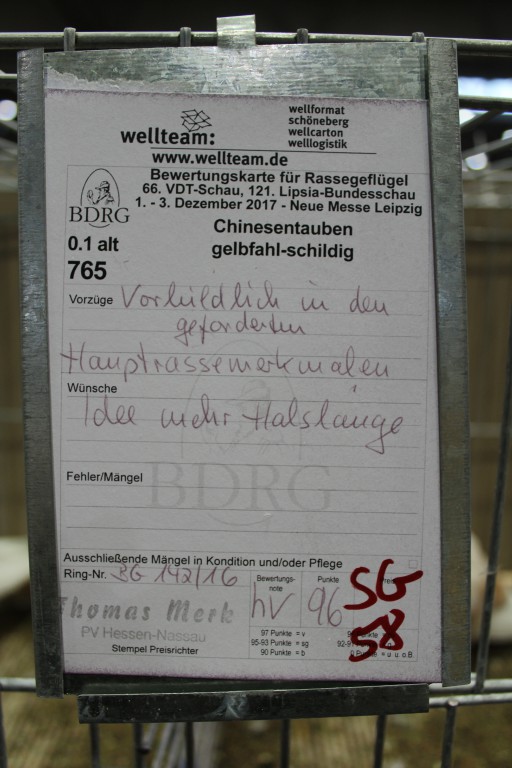 wellteam:
wellformat
schöneberg
wellcarton
welllogistik
www.wellteam.de
BDRG
Bewertungskarte für Rassegeflügel
66. VDT-Schau, 121. Lipsia-Bundesschau
1. - 3. Dezember 2017 - Neue Messe Leipzig
0.1 alt
765
Chinesentauben
gelbfahl-schildig
Vorzüge Vorbildlich in den
geforderten
Hauptrassemerkmalen
Wünsche
Idee mehr Halslänge
Fehler/Mängel
BDRG
Ausschließende Mängel in Kondition und/oder Pflege
Ring-Nr. BG 142/16
Thomas Merk
PV Hessen-Nassau
Stempel Preisrichter
Bewertungs-
note
hV
Punkte
96
SG
58
97 Punkte = v
95-93 Punkte = sg
90 Punkte = b
0 Punkte = u. o.B.